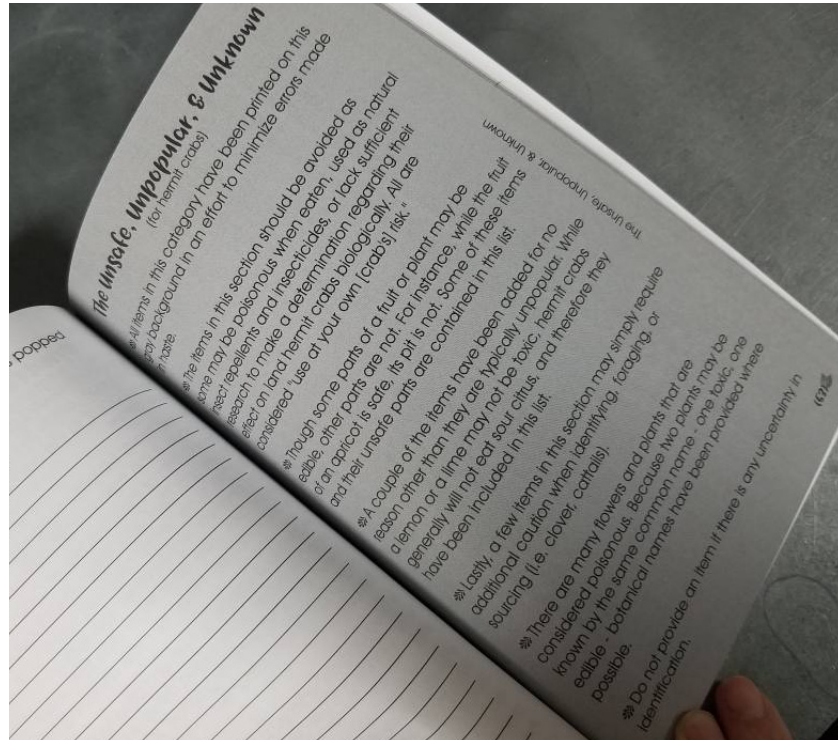 The Unsafe, Unpopular, & Unknown
(for hermit crabs)
All items in this category have been printed on this
gray background in an effort to minimize errors made
in haste.
The items in this section should be avoided as
some may be poisonous when eaten, used as natural
insect repellents and insecticides, or lack sufficient
research to make a determination regarding their
effect on land hermit crabs biologically. All are
considered "use at your own [crab's] risk."
Though some parts of a fruit or plant may be
edible, other parts are not. For instance, while the fruit
of an apricot is safe, its pit is not. Some of these items
and their unsafe parts are contained in this list.
A couple of the items have been added for no
reason other than they are typically unpopular. While
a lemon or a lime may not be toxic, hermit crabs
generally will not eat sour citrus, and therefore they
have been included in this list.
Lastly, a few items in this section may simply require
additional caution when identifying, foraging, or
sourcing (i.e. clover, cattails).
There are many flowers and plants that are
considered poisonous. Because two plants may be
known by the same common name - one toxic, one
edible - botanical names have been provided where
possible.
Do not provide an item if there is any uncertainty in
identification.
The Unsafe, Unpopular, & Unknown
popped